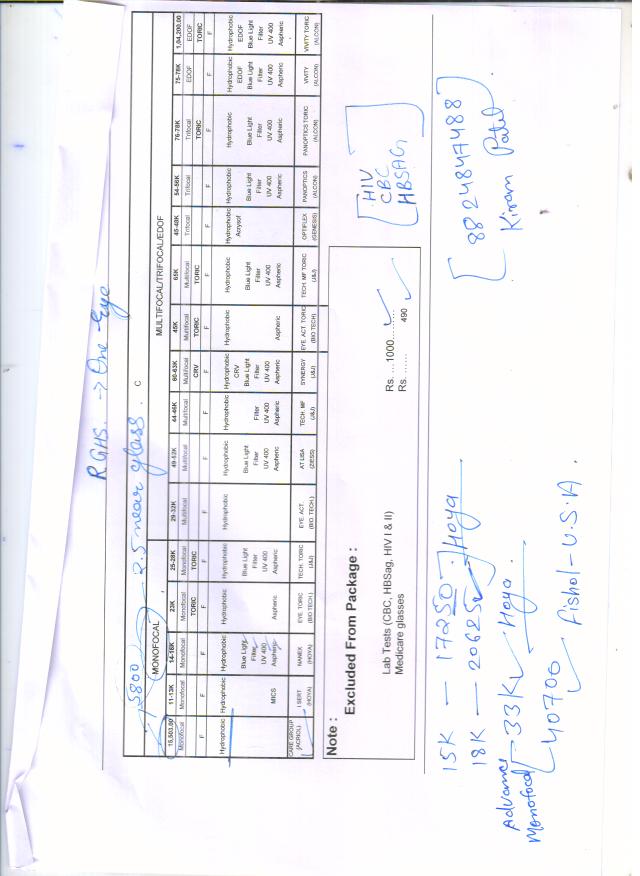 RGHS. → One-Eye
5800
2.5 near glass. C
MONOFOCAL MULTIFOCAL/TRIFOCAL/EDOF
15,503.00 11-13K 14-16K 23K 25-28K 29-32K 49-52K 44-46K 60-63K 45K 65K 45-48K 54-56K 76-78K 75-78K 1,04,200.00
Monofocal Monofocal Monofocal Monofocal Monofocal Multifocal Multifocal Multifocal Multifocal Multifocal Multifocal Trifocal Trifocal Trifocal EDOF EDOF
TORIC TORIC CRV TORIC TORIC TORIC TORIC
F F F F F F F F F F F F F F F F
Hydrophobic Hydrophobic Hydrophobic Hydrophobic Hydrophobic Hydrophobic Hydrophobic Hydrophobic Hydrophobic Hydrophobic Hydrophobic Hydrophobic Hydrophobic Hydrophobic Hydrophobic Hydrophobic
CRV Acrysof EDOF EDOF
Blue Light Blue Light Blue Light Blue Light Blue Light Blue Light Blue Light Blue Light Blue Light
Filter Filter Filter Filter Filter Filter Filter Filter Filter Filter
UV 400 UV 400 UV 400 UV 400 UV 400 UV 400 UV 400 UV 400 UV 400 UV 400
MICS Aspheric Aspheric Aspheric Aspheric Aspheric Aspheric Aspheric Aspheric Aspheric Aspheric Aspheric Aspheric
CARE GROUP I SERT NANEX EYE. TORIC TECH. TORIC EYE. ACT. AT LISA TECH. MF SYNERGY EYE. ACT. TORIC TECH. MF TORIC OPTIFLEX PANOPTICS PANOPTICS TORIC VIVITY VIVITY TORIC
(ACRIOL) (HOYA) (HOYA) (BIO TECH.) (J&J) (BIO TECH.) (ZIESS) (J&J) (J&J) (BIO TECH) (J&J) (GENESIS) (ALCON) (ALCON) (ALCON) (ALCON)
Note :
Excluded From Package :
Lab Tests (CBC, HBSag, HIV I & II) Rs. .... 1000..........
Medicare glasses Rs. ........ 490
HIV
CBC
HBSAG
15K — 17250 - Hoya
18K — 20625 Hoya
Advance Monofocal 33K Hoya.
40700 Fishol - U.S.A.
8824847488
Kiram Patel